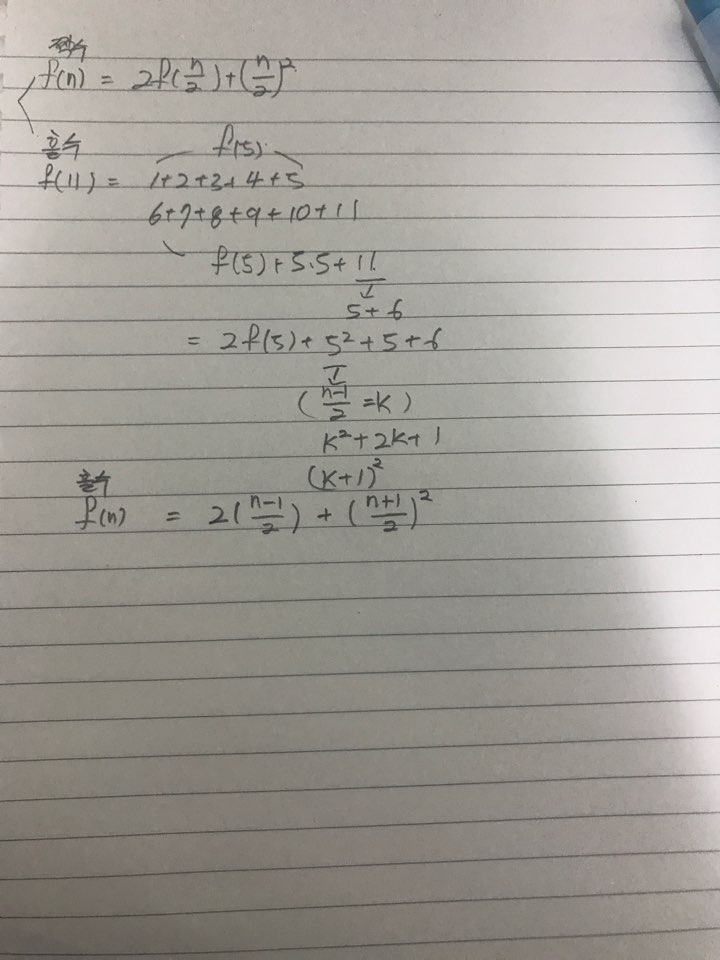 짝수
f(n) = 2f(n/2)+(n/2)²
홀수
f(5)
f(11) = 1+2+3+4+5
6+7+8+9+10+11
f(5)+5.5+11
5+6
= 2f(5)+5²+5+6
(n-1/2 =k)
k²+2k+1
(k+1)²
홀수
f(n) = 2(n-1/2) + (n+1/2)²